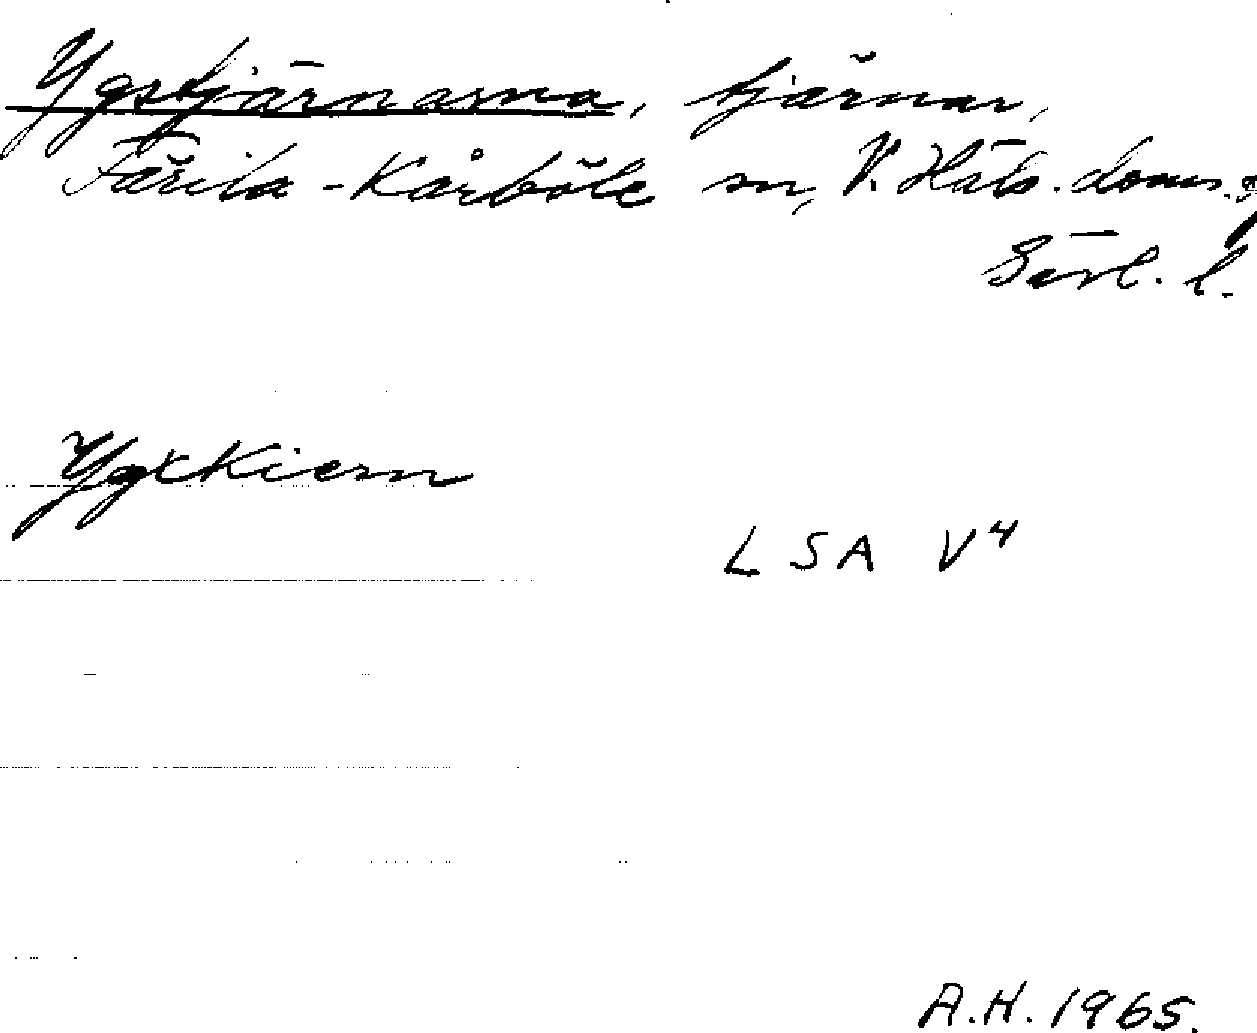 Ygstjärnarna, tjärnar,
Färila-Kårböle sn, V. Häls. doms.,
Gävl. l.
Ygxkiern
LSA V4
A.H. 1965.